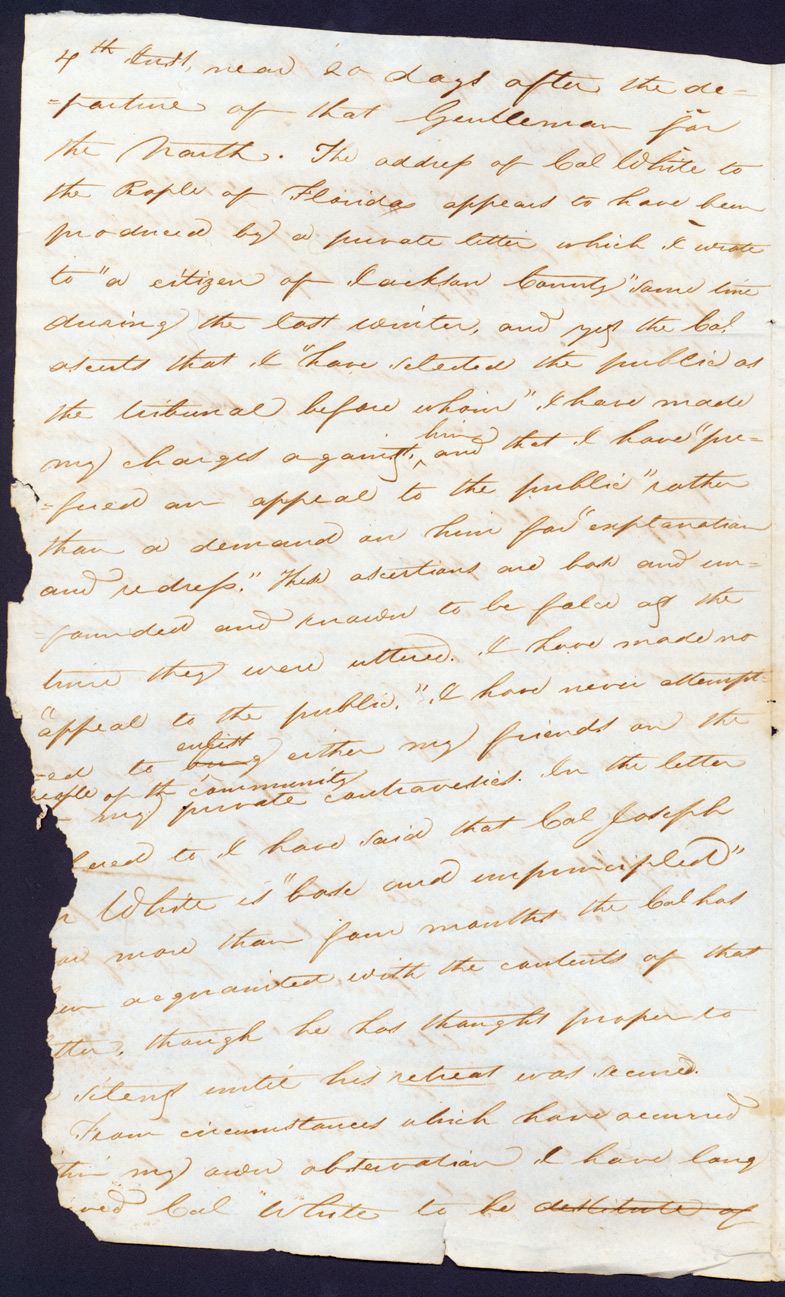 4th Inst, near 20 days after the de=
=parture of that Gentleman for
the North. The address of Col White to
the People of Florida appears to have been
produced by a private letter which I wrote
to "a citizen of Jackson County" some time
during the last winter, and yet the Col,
aserts that I "have selected the public as
the tribunal before whom" I have made
my charges against, him and that I have "pre=
=fered an appeal to the public" rather
than a demand on him for "explanation
and redress." These asertions are base and un=
=founded and known to be false at the
time they were uttered. I have made no
"appeal to the public." I have never attempt=
=ed to enlist bring either my friends or the
people of the community
my private controversies. In the letter
fered to I have said that Col Joseph
White is "base and unprincipled"
or more than four months the Col has
en acquainted with the contents of that
tter, though he has thought proper to
silent until his retreat was secured.
From circumstances which have occurred
thin my own observation I have long
ived Col White to be destitute of